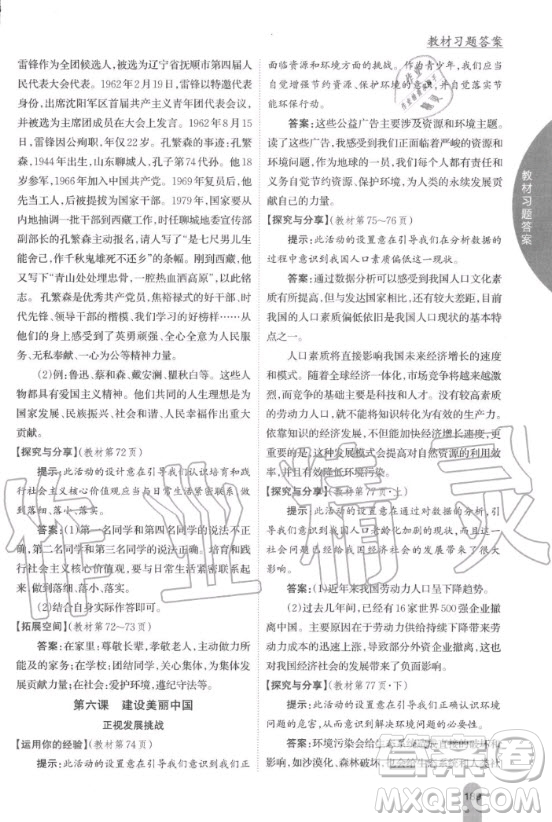 教材习题答案
雷锋作为全团候选人，被选为辽宁省抚顺市第四届人
民代表大会代表。1962年2月19日，雷锋以特邀代表
身份，出席沈阳军区首届共产主义青年团代表会议，
并被选为主席团成员在大会上发言。1962年8月15
日，雷锋因公殉职，年仅22岁。孔繁森的事迹：孔繁
森，1944年出生，山东聊城人，孔子第74代孙。他18
岁参军，1966年9月加入中国共产党，1969年从部队
复员后，先当工人，后被提拔为国家干部。国家要从
内地抽调一批干部到西藏工作，时任聊城地委宣传部
副部长的孔繁森主动报名，并写下了“是七尺男儿生
能舍己，作千秋鬼雄死不还乡”的条幅。到西藏后，他
又写下了“青山处处埋忠骨，一腔热血洒高原”以铭
志。孔繁森是优秀共产党员，焦裕禄式的好干部，时
代先锋、领导干部的楷模，我们学习的好榜样……
我们在他们身上感受到了英勇顽强、全心全意为人民
服务、无私奉献、一心向党等精神。
(2)例：鲁迅、蔡和森、戴安澜、瞿秋白等。这些人
物都具有爱国主义精神。他们共同的人生理想影响了
国家发展、民族振兴、社会和谐，为人类作出了巨大
贡献。
【探究与分享】(教材第72页)
提示：此活动的设置意在引导我们认识培育和践
行社会主义核心价值观应当与日常生活紧密联系，做
到落细、落小、落实。
答案：(1)第一名同学和第四名同学的说法不正
确，第二名同学和第三名同学的说法正确。培育和
践行社会主义核心价值观，应与日常生活紧密联系，
做到落细、落小、落实。
(2)结合自身实际作答即可。
【拓展空间】(教材第72~73页)
答案：在家里：尊敬长辈，孝敬老人，主动承担力所
能及的家务劳动；在学校：团结同学，关心集体，积极参
加集体活动；在社会：爱护环境，遵纪守法等。
第六课　建设美丽中国
正视发展挑战
【运用你的经验】(教材第74页)
提示：此活动的设置意在引导我们认识到我们正
面临资源和环境方面的挑战。作为青少年，我们也应当
自觉增强节约资源、保护环境的意识，并自觉落实节
能环保行动。
答案：这些公益广告主要涉及资源和环境主题。
读了这些公益广告，我意识到我国正面临严峻的资源
和环境问题，作为地球的一员，我们应当增强环保意
识、节约资源、保护环境，为人类的永续发展贡献
自己的力量。
【探究与分享】(教材第75~76页)
提示：此活动的设置意在引导我们在分析数据的
过程中意识到我国人口素质偏低这一现状。
答案：通过数据分析可以感受到我国人口文化素
质有所提高，人口的身体素质也得到了较大的提升，
但我国人口素质偏低依旧是我国人口现状的基本特
点之一。
人口素质将直接影响我国未来经济增长的速度
和模式。随着全球经济一体化，市场竞争将越来越激
烈，这些竞争归根到底是人才的竞争，没有较高素质
的劳动力人口，就不可能转化为较高技术含量的生产力。
依靠知识的经济发展，人口素质越高，经济增长速度
越快，而且高素质人才的贡献将会提升对自然资源的利用效
率，从而降低环境污染。
【探究与分享】(教材第77页·上)
提示：此活动的设置意在引导我们在分析数据的
过程中意识到我国人口老龄化加剧的现状，以及这一
现状给我国经济发展带来的影响。
答案：(1)近年来我国劳动力人口呈下降趋势。
(2)过去几年间，已经有16家世界500强企业撤
离中国。这主要是因为由于劳动力人口不断下降，劳动
力成本迅速上涨，不少企业撤离。这些企业撤离
对我国经济社会的发展造成了一定影响。
【探究与分享】(教材第77页·下)
提示：此活动的设置意在引导我们正确认识环境
问题的危害，从而意识到解决环境问题的必要性。
答案：环境污染会给生态系统造成直接的破坏和
影响，如沙漠化、森林破坏，也会给生态系统和人类社
教材习题答案
作业精灵
答案圈
MXQE.COM